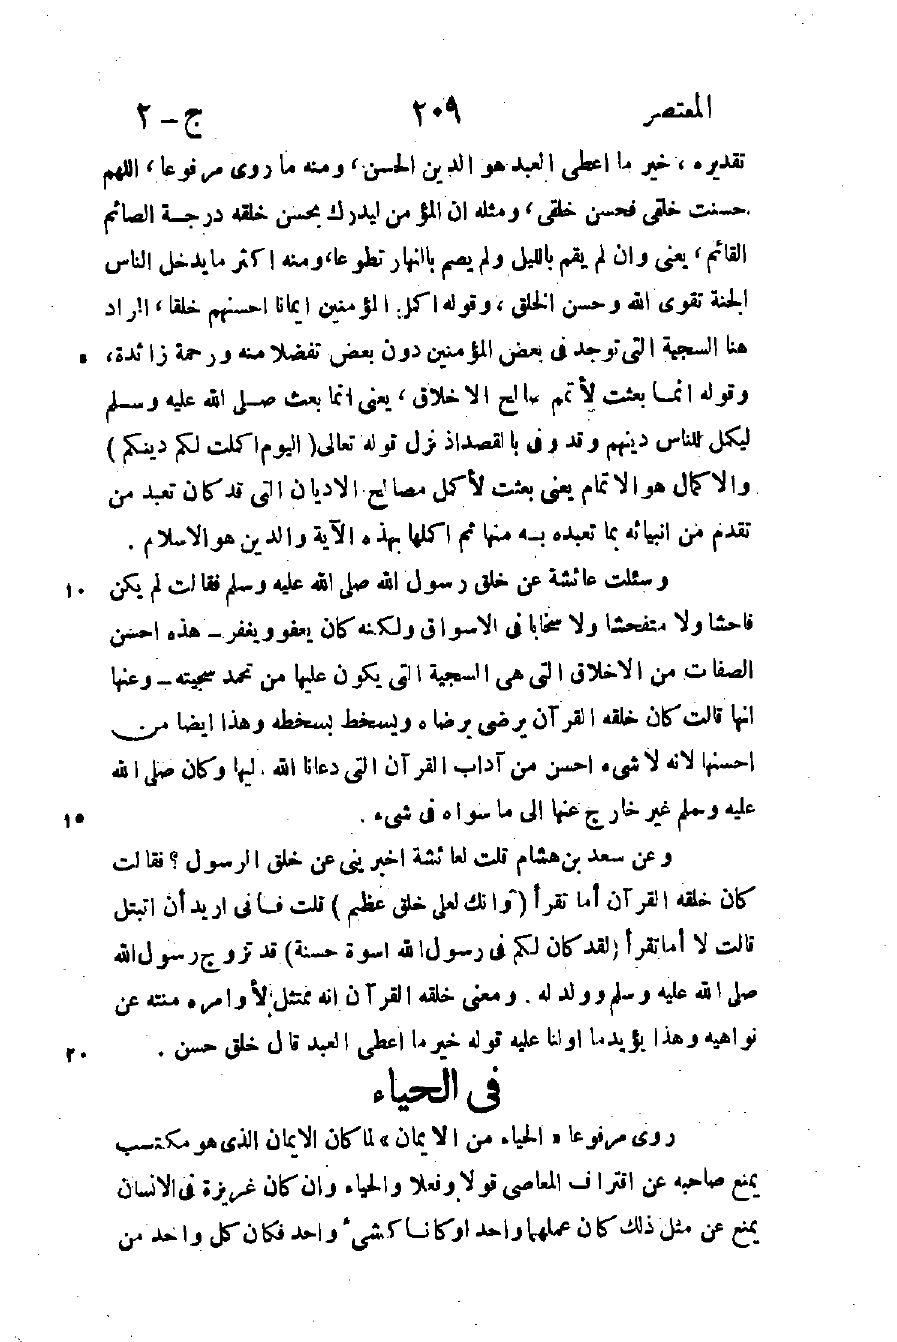 المعتصر ٢٠٩ ج – ٢
تقديره ، خير ما اعطى العبد هو الدين الحسن ، ومنه ما روى مرفوعا ، اللهم
حسنت خلقى فحسن خلقى ، ومثله ان المؤمن ليدرك بحسن خلقه درجة الصائم
القائم ، يعنى وان لم يقم بالليل ولم يصم بالنهار تطوعا ، ومنه اكثر ما يدخل الناس
الجنة تقوى الله وحسن الخلق ، وقوله اكمل المؤمنين ايمانا احسنهم خلقا ، المراد
هنا السجية التى توجد فى بعض المؤمنين دون بعض تفضلا منه ورحمة زائدة ، ٥
وقوله انما بعثت لأتمم صالح الاخلاق ، يعنى انما بعث صلى الله عليه وسلم
ليكمل للناس دينهم وقد وفى بالقصد اذ نزل قوله تعالى ( اليوم اكملت لكم دينكم )
والاكمال هو الاتمام يعنى بعثت لأكمل مصالح الاديان التى قد كان تعبد من
تقدم من انبيائه بما تعبده به منها ثم اكملها بهذه الآية والدين هو الاسلام .
وسئلت عائشة عن خلق رسول الله صلى الله عليه وسلم فقالت لم يكن ١٠
فاحشا ولا متفحشا ولا سخابا فى الاسواق ولكنه كان يعفو ويغفر – هذه احسن
الصفات من الاخلاق التى هى السجية التى يكون عليها من تحمد سجيته – وعنها
انها قالت كان خلقه القرآن يرضى برضاه ويسخط بسخطه وهذا ايضا من
احسنها لانه لا شىء احسن من آداب القرآن التى دعانا الله اليها وكان صلى الله
عليه وسلم غير خارج عنها الى ما سواه فى شىء . ١٥
وعن سعد بن هشام قلت لعائشة اخبرينى عن خلق الرسول ؟ فقالت
كان خلقه القرآن أما تقرأ ( وانك لعلى خلق عظيم ) قلت فانى اريد أن اتبتل
قالت لا أما تقرأ ( لقد كان لكم فى رسول الله اسوة حسنة ) قد تزوج رسول الله
صلى الله عليه وسلم وولد له . ومعنى خلقه القرآن انه ممتثل لأوامره منته عن
نواهيه وهذا يؤيد ما اولنا عليه قوله خير ما اعطى العبد قال خلق حسن . ٢٠
فى الحياء
روى مرفوعا « الحياء من الايمان » لما كان الايمان الذى هو مكتسب
يمنع صاحبه عن اقتراف المعاصى قولا وفعلا والحياء وان كان غريزة فى الانسان
يمنع عن مثل ذلك كان عملهما واحد اوكانا كشىء واحد فكان كل واحد من